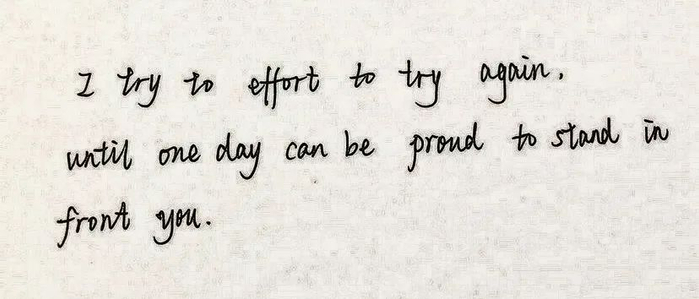 I try to effort to try again.
until one day can be proud to stand in
front you.